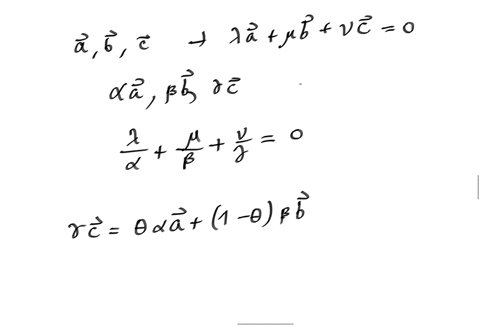 a⃗, b⃗, c⃗ → λa⃗ + μb⃗ + νc⃗ = 0
αa⃗, βb⃗, γc⃗
λ/α + μ/β + ν/γ = 0
γc⃗ = θαa⃗ + (1-θ)βb⃗